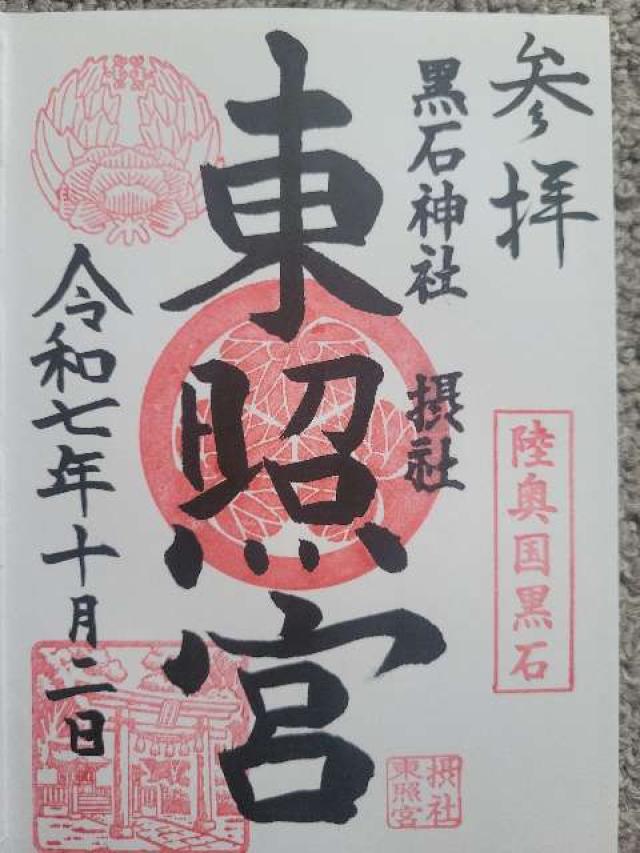 参拝
陸奥国黒石
黒石神社 摂社
東照宮
摂社
東照宮
令和七年十月二日